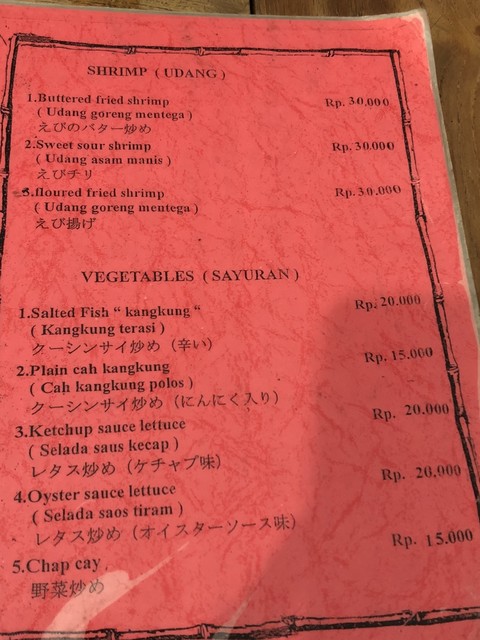 SHRIMP ( UDANG )
1.Buttered fried shrimp Rp. 30.000
( Udang goreng mentega )
えびのバター炒め
2.Sweet sour shrimp Rp. 30.000
( Udang asam manis )
えびチリ
3.floured fried shrimp Rp. 30.000
( Udang goreng mentega )
えび揚げ
VEGETABLES ( SAYURAN )
1.Salted Fish “ kangkung “ Rp. 20.000
( Kangkung terasi )
クーシンサイ炒め（辛い）
2.Plain cah kangkung Rp. 15.000
( Cah kangkung polos )
クーシンサイ炒め（にんにく入り）
3.Ketchup sauce lettuce Rp. 20.000
( Selada saus kecap )
レタス炒め（ケチャプ味）
4.Oyster sauce lettuce Rp. 20.000
( Selada saos tiram )
レタス炒め（オイスターソース味）
5.Chap cay Rp. 15.000
野菜炒め